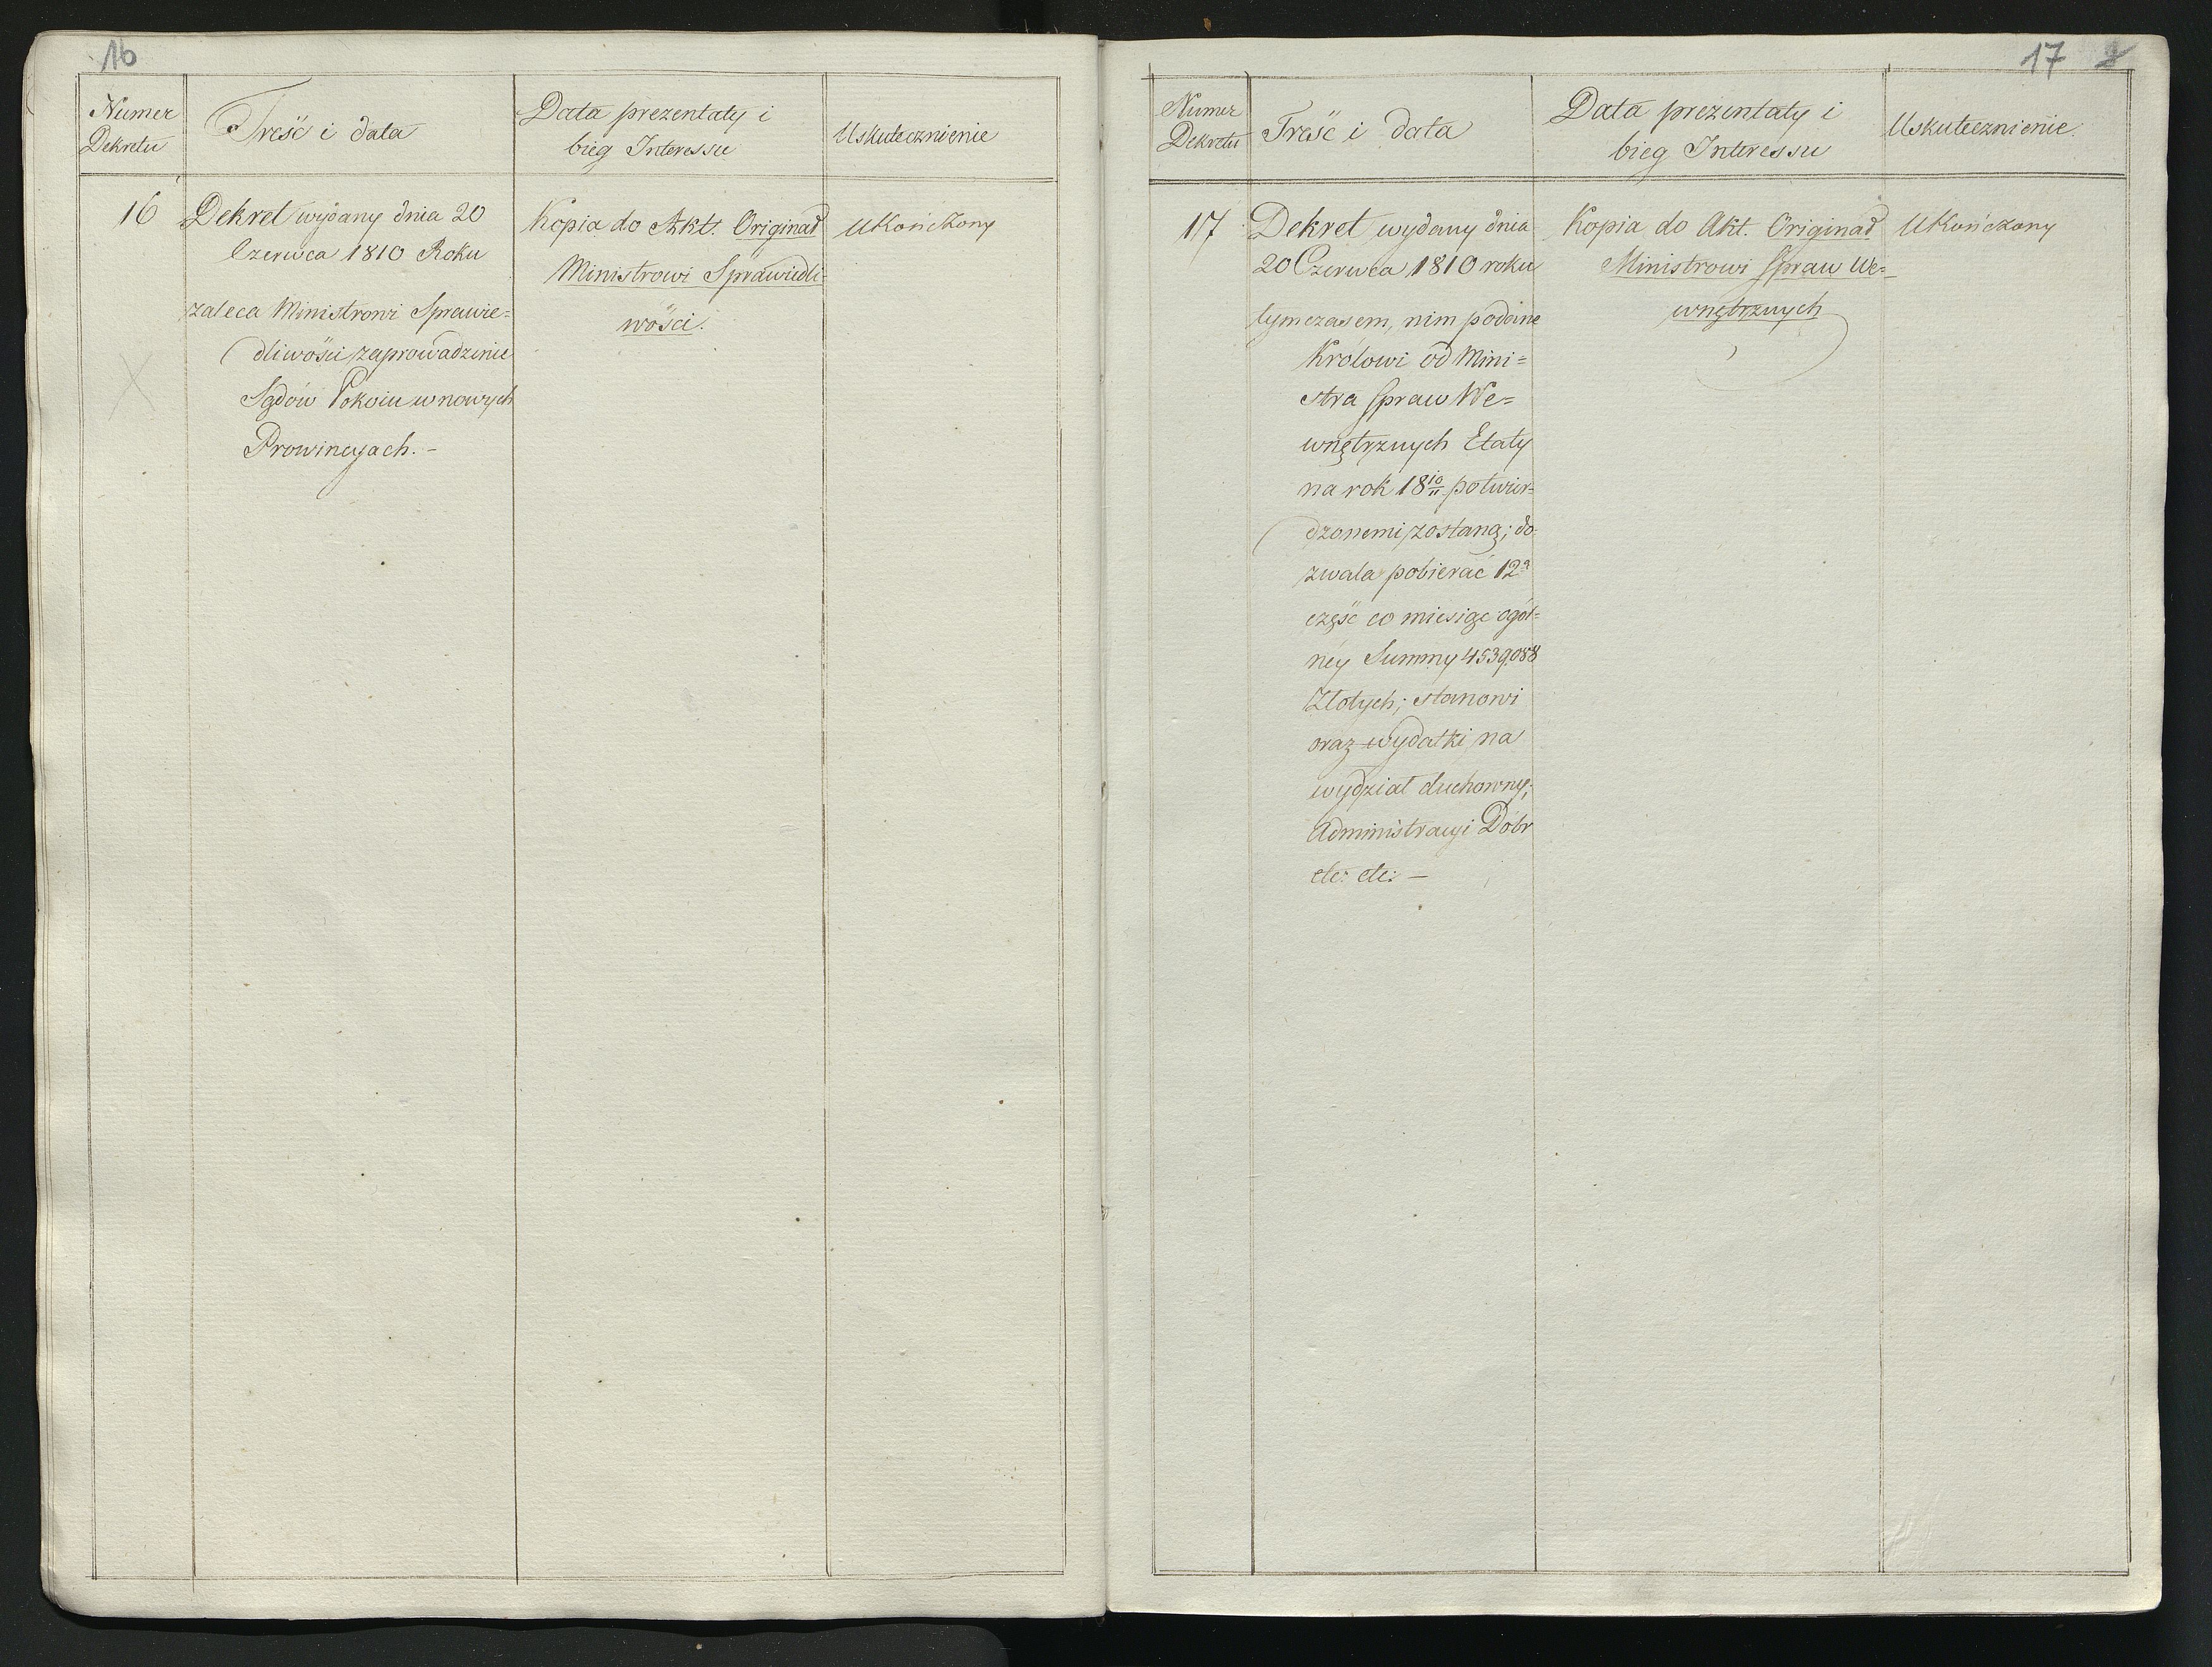 16
Numer
Dekretu
Treść i data
Data prezentaty i
bieg Interessu
Uskutecznienie
16
Dekret wydany dnia 20
Czerwca 1810 Roku
zaleca Ministrowi Sprawie=
dliwości zaprowadzenie
Sądów Pokoiu w nowych
Prowincyach. -
Kopia do Akt. Originał
Ministrowi Sprawiedli=
wości.
Ukończony
17
Numer
Dekretu
Treść i data
Data prezentaty i
bieg Interessu
Uskutecznienie.
17
Dekret wydany dnia
20 Czerwca 1810 roku
tymczasem, nim podane
Królowi od Mini=
stra Spraw We=
wnętrznych Etaty
na rok 18 10/11 potwier=
dzonemi zostaną; do=
zwala pobierać 12ą
część co miesiąc ogół=
néy Summy 4539088
Złotych; stanowi
oraz wydatki na
wydział duchowny;
Administracyi Dobr
etc: etc: —
Kopia do Akt. Originał
Ministrowi Spraw We=
wnętrznych
Ukończony